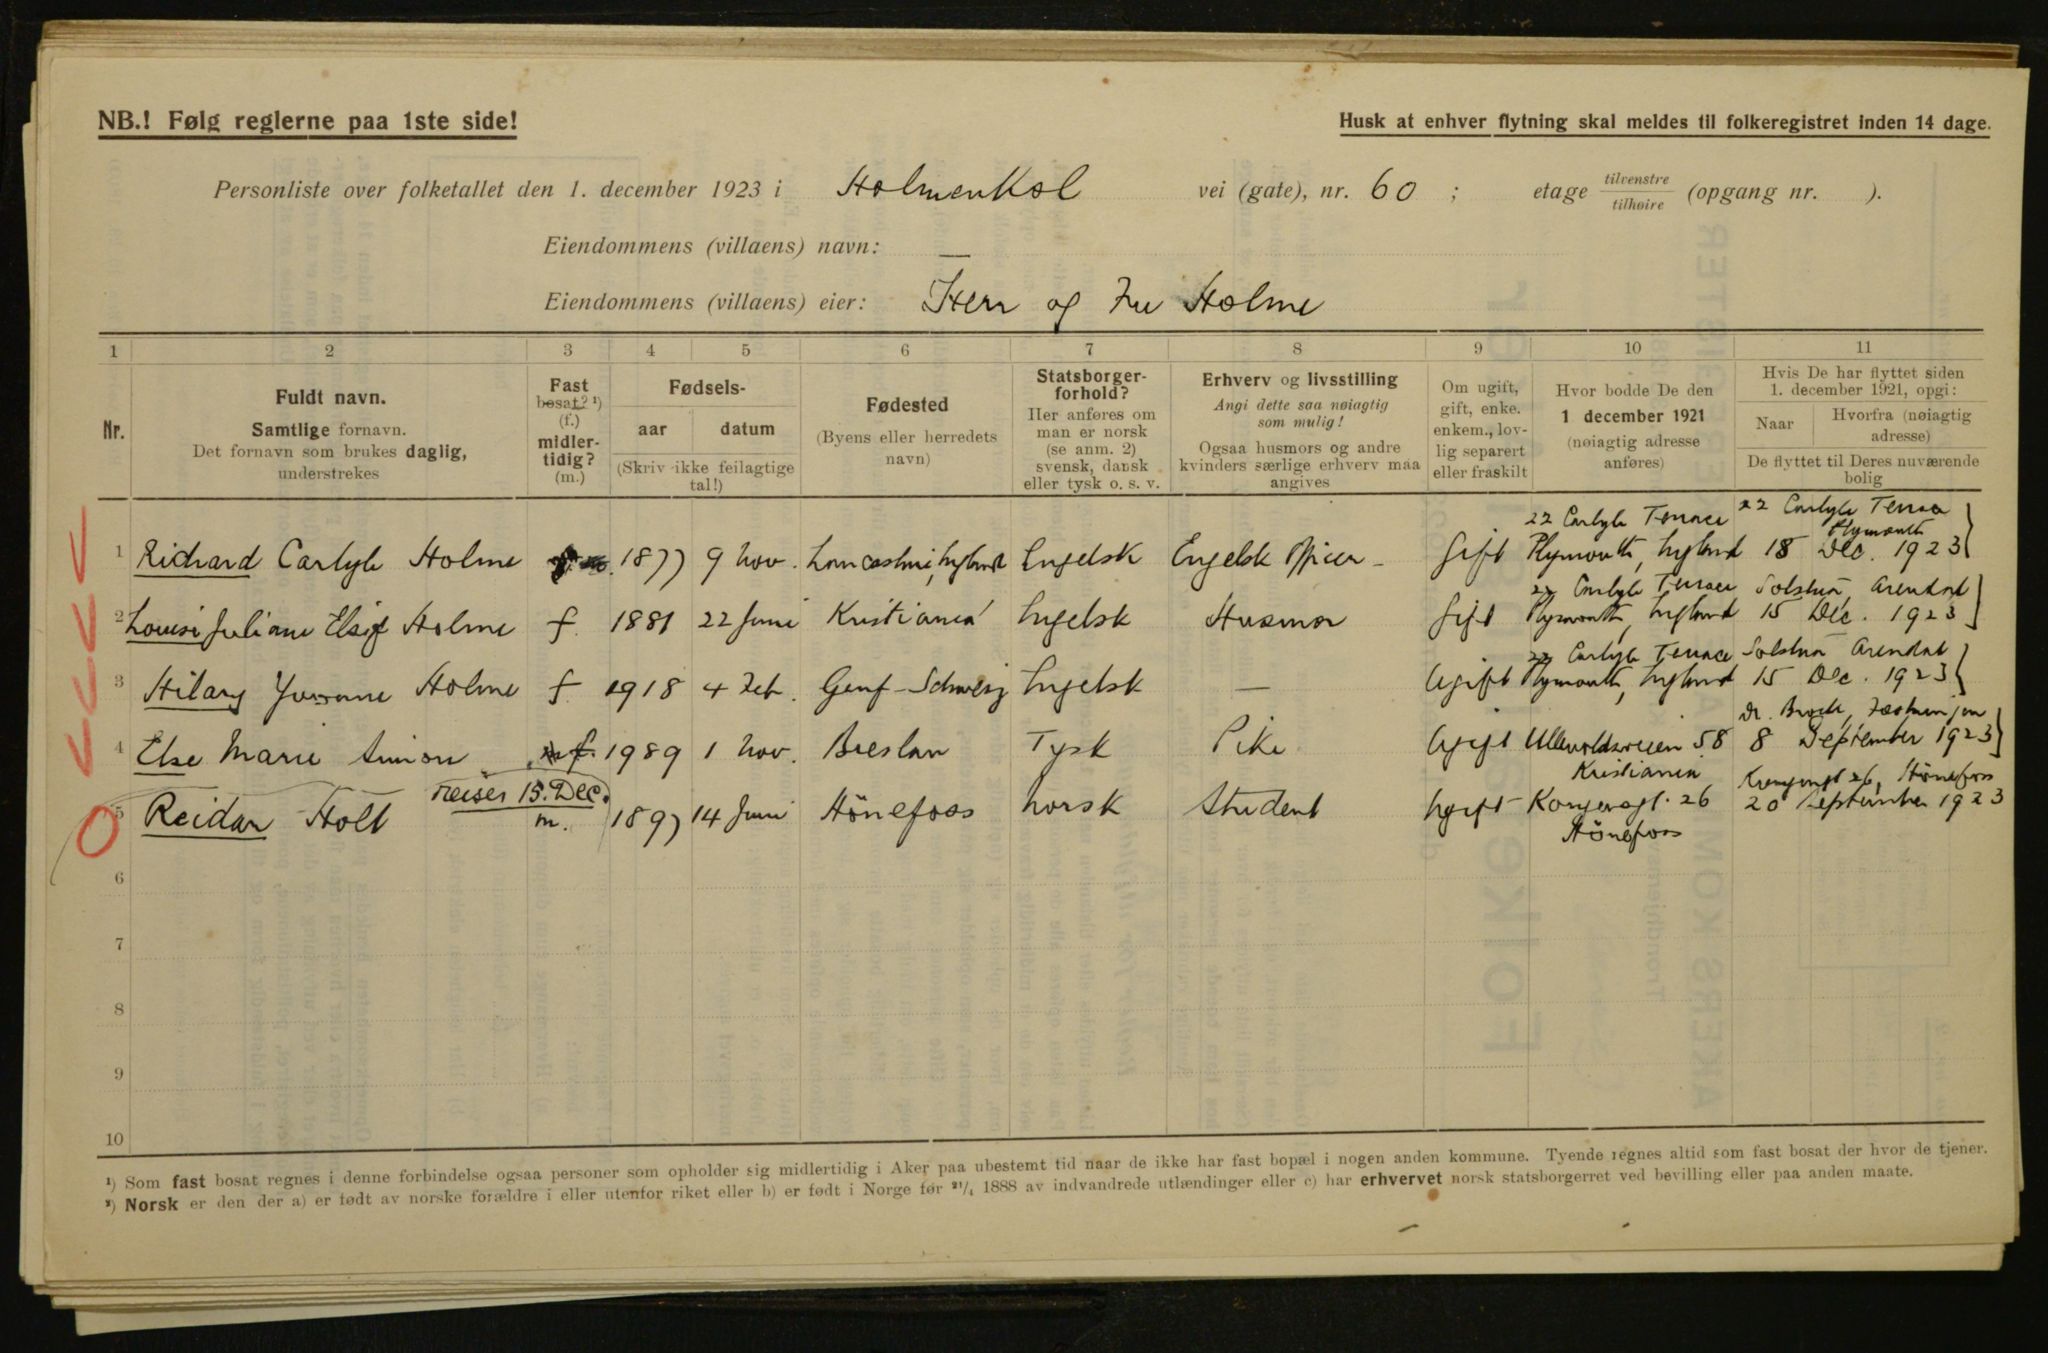 NB.! Følg reglerne paa 1ste side!
Husk at enhver flytning skal meldes til folkeregistret inden 14 dage.
Personliste over folketallet den 1. december 1923 i Holmenkol vei (gate), nr. 60 ; etage tilvenstre / tilhøire (opgang nr. ).
Eiendommens (villaens) navn: —
Eiendommens (villaens) eier: Herr og Fru Holme
1 2 3 4 5 6 7 8 9 10 11
Nr.
Fuldt navn.
Samtlige fornavn.
Det fornavn som brukes daglig,
understrekes
Fast
bosat? ¹)
(f.)
midler-
tidig?
(m.)
Fødsels-
aar datum
(Skriv ikke feilagtige
tal!)
Fødested
(Byens eller herredets
navn)
Statsborger-
forhold?
Her anføres om
man er norsk
(se anm. 2)
svensk, dansk
eller tysk o. s. v.
Erhverv og livsstilling
Angi dette saa nøiagtig
som mulig!
Ogsaa husmors og andre
kvinders særlige erhverv maa
angives
Om ugift,
gift, enke.
enkem., lov-
lig separert
eller fraskilt
Hvor bodde De den
1 december 1921
(nøiagtig adresse
anføres)
Hvis De har flyttet siden
1. december 1921, opgi:
Naar Hvorfra (nøiagtig
adresse)
De flyttet til Deres nuværende
bolig
22 Carlyle Terrace 22 Carlyle Terrace
Plymouth
1 Richard Carlyle Holme 1877 9 Nov. Lancashire, England Engelsk Engelsk Officer Gift Plymouth, England 18 Dec. 1923
22 Carlyle Terrace Solstua, Arendal
2 Louise Juliane Holme f. 1881 22 Juni Kristiania Engelsk Husmor Gift Plymouth, England 15 Dec. 1923
22 Carlyle Terrace Solstua Arendal
3 Hilary Yvonne Holme f. 1918 4 Feb. Genf - Schweiz Engelsk — Ugift Plymouth, England 15 Dec. 1923
Dr. Brock,
4 Else Marie Simon f. 1989 1 Nov. Breslau Tysk Pike Ugift Ullevoldsveien 58 8 September 1923
Kristiania
reiser 15. Dec. Kongensgt 26, Hönefoss
5 Reidar Holt m. 1897 14 Juni Hönefoss Norsk Student Ugift Kongensgt. 26 20 September 1923
Hönefoss
6
7
8
9
10
¹) Som fast bosat regnes i denne forbindelse ogsaa personer som opholder sig midlertidig i Aker paa ubestemt tid naar de ikke har fast bopæl i nogen anden kommune. Tyende regnes altid som fast bosat der hvor de tjener.
²) Norsk er den der a) er født av norske forældre i eller utenfor riket eller b) er født i Norge før ²¹/₄ 1888 av indvandrede utlændinger eller c) har erhvervet norsk statsborgerret ved bevilling eller paa anden maate.